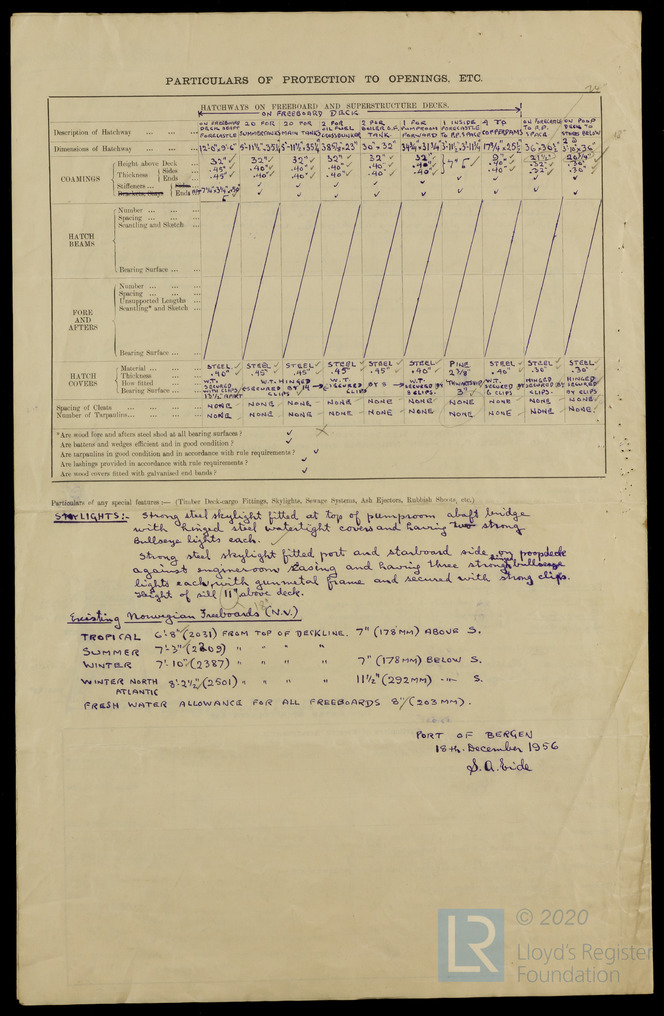 PARTICULARS OF PROTECTION TO OPENINGS, ETC.
24
HATCHWAYS ON FREEBOARD AND SUPERSTRUCTURE DECKS.
ON FREEBOARD DECK
Description of Hatchway ON FREEBOARD DECK ABAFT FORECASTLE 20 FOR SUMMERTANKS 20 FOR MAIN TANKS 2 FOR OIL FUEL CROSSBUNKER 2 FOR BOILER O.F. TANK 1 FOR PUMPROOM FORWARD 1 INSIDE FORECASTLE TO F.P. SPACE 4 TO COFFERDAMS ON FORECASTLE TO F.P. SPACE ON POOP DECK TO STORES BELOW
Dimensions of Hatchway
COAMINGS
Height above Deck 32" 32" 32" 32" 32" 32" 7" 9"
Thickness Sides .45" .40" .40" .40" .40" .40"
Ends .45" .40" .40" .40" .40" .40"
Stiffeners Sides
Brackets, Stays Ends
HATCH BEAMS
Number
Spacing
Scantling and Sketch
Bearing Surface
FORE AND AFTERS
Number
Spacing
Unsupported Lengths
Scantling* and Sketch
Bearing Surface
HATCH COVERS
Material STEEL STEEL STEEL STEEL STEEL STEEL PINE STEEL STEEL STEEL
Thickness .40" .45" .45" .45" .45" .40" 2 3/8" .40" .30" .30"
How fitted W.T. SECURED WITH CLIPS 13½" APART W.T. HINGED SECURED BY 14 CLIPS W.T. SECURED BY 8 CLIPS W.T. SECURED BY 8 CLIPS. THWARTSHIP W.T. SECURED 6 CLIPS HINGED SECURED BY CLIPS. HINGED SECURED BY CLIPS
Bearing Surface 3"
Spacing of Cleats NONE NONE NONE NONE NONE NONE NONE NONE NONE NONE
Number of Tarpaulins NONE NONE NONE NONE NONE NONE NONE NONE NONE NONE
*Are wood fore and afters steel shod at all bearing surfaces?
Are battens and wedges efficient and in good condition?
Are tarpaulins in good condition and in accordance with rule requirements?
Are lashings provided in accordance with rule requirements?
Are wood covers fitted with galvanised end bands?
Particulars of any special features:— (Timber Deck-cargo Fittings, Skylights, Sewage Systems, Ash Ejectors, Rubbish Shoots, etc.)
SKYLIGHTS:- Strong steel skylight fitted at top of pumproom abaft bridge
with hinged steel watertight covers and having two strong
Bullseye lights each.
Strong steel skylight fitted port and starboard side on poopdeck
against engineroom casing and having three strong bullseye
lights each, with gunmetal frame and secured with strong clips.
Height of sill 11" above deck.
Existing Norwegian Freeboards (N.V.)
TROPICAL 6'-8" (2031) FROM TOP OF DECKLINE. 7" (178 MM) ABOVE S.
SUMMER 7'-3" (2209) " " " "
WINTER 7'-10" (2387) " " " " 7" (178 MM) BELOW S.
WINTER NORTH ATLANTIC 8'-2½" (2501) " " " " 11½" (292 MM) -"- S.
FRESH WATER ALLOWANCE FOR ALL FREEBOARDS 8" (203 MM).
PORT OF BERGEN
18th. December 1956
S. A. Eide
LR
© 2020
Lloyd's Register
Foundation